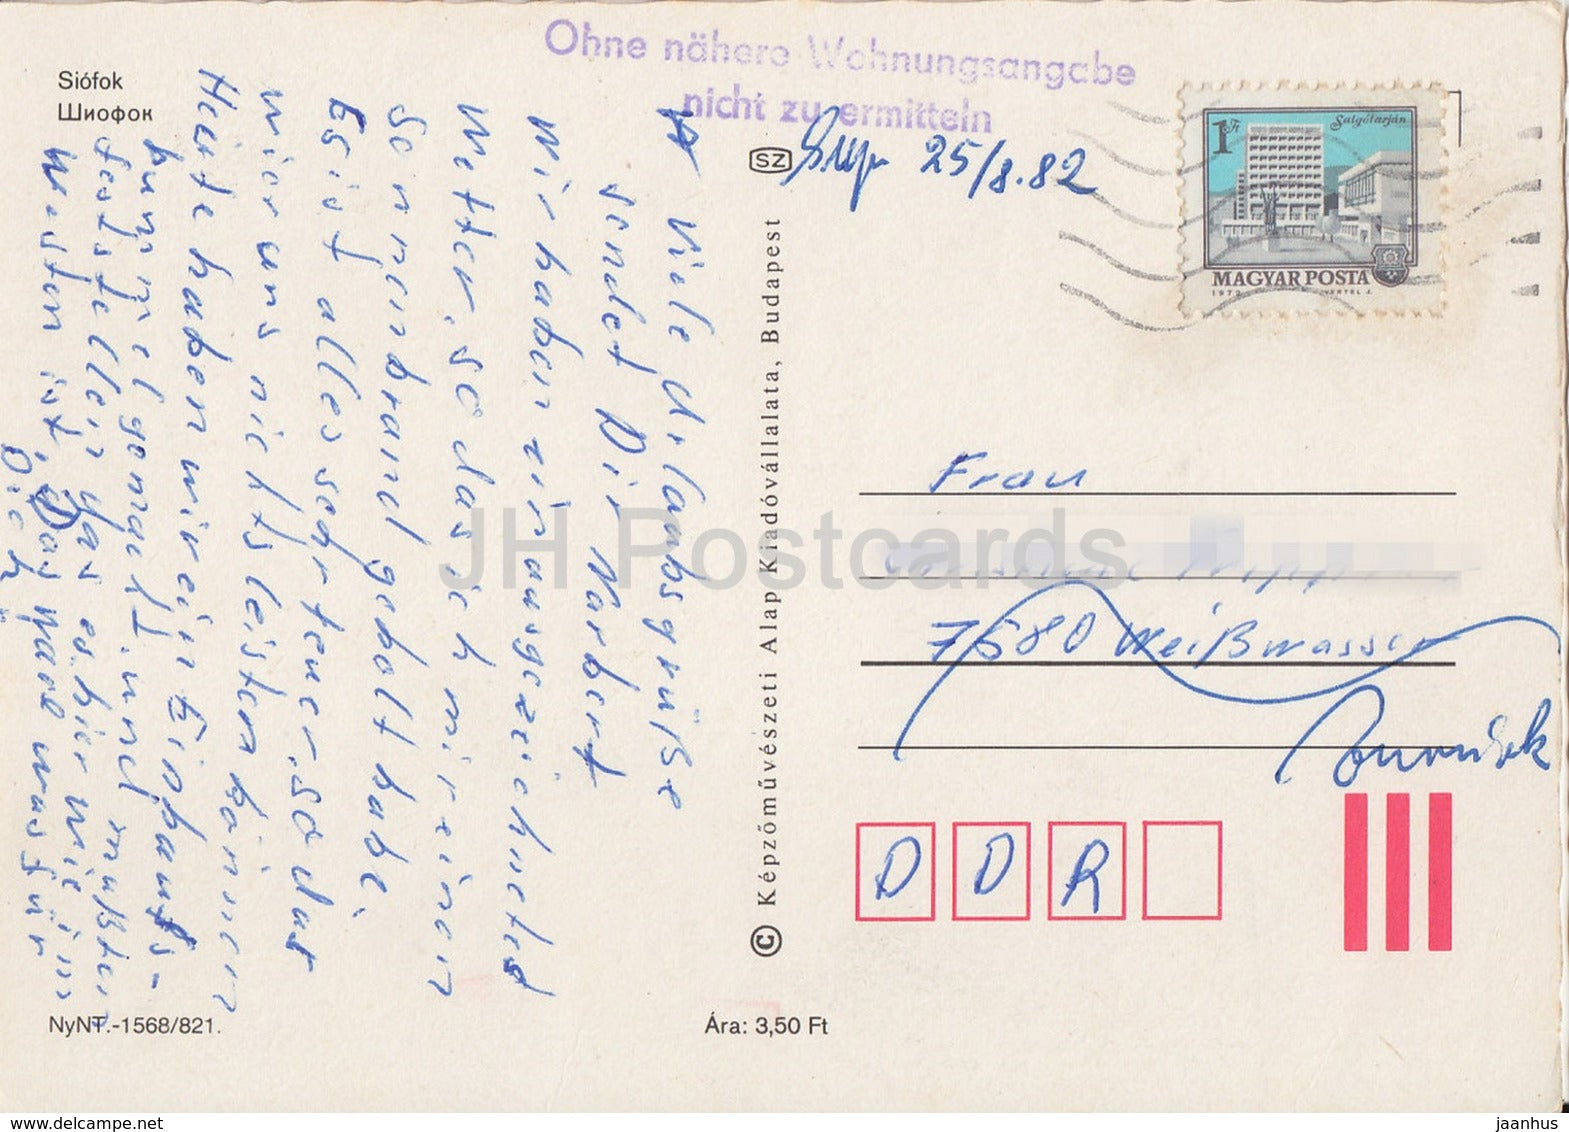 Siófok
Шиофок
Ohne nähere Wohnungsangabe
nicht zu ermitteln
SZ
25/8.82
1 Ft
Salgótarján
MAGYAR POSTA
1972 VERTEL J.
Viele Urlaubsgrüße
sendet Dir Norbert
Wir haben ein ausgezeichnetes
Wetter, so das ich mir einen
Sonnenbrand geholt habe.
Es ist alles sehr teuer, so das
wir uns nichts leisten können
Heute haben wir ein Einkaufs-
bummel gemacht. und mußten
feststellen das es hier wie im
Westen ist. Das wäre was für
Dich
© Képzőművészeti Alap Kiadóvállalata, Budapest
Frau
7580 Weißwasser
zurück
D D R
NyNT.-1568/821.
Ára: 3,50 Ft
JH Postcards
jaanhus